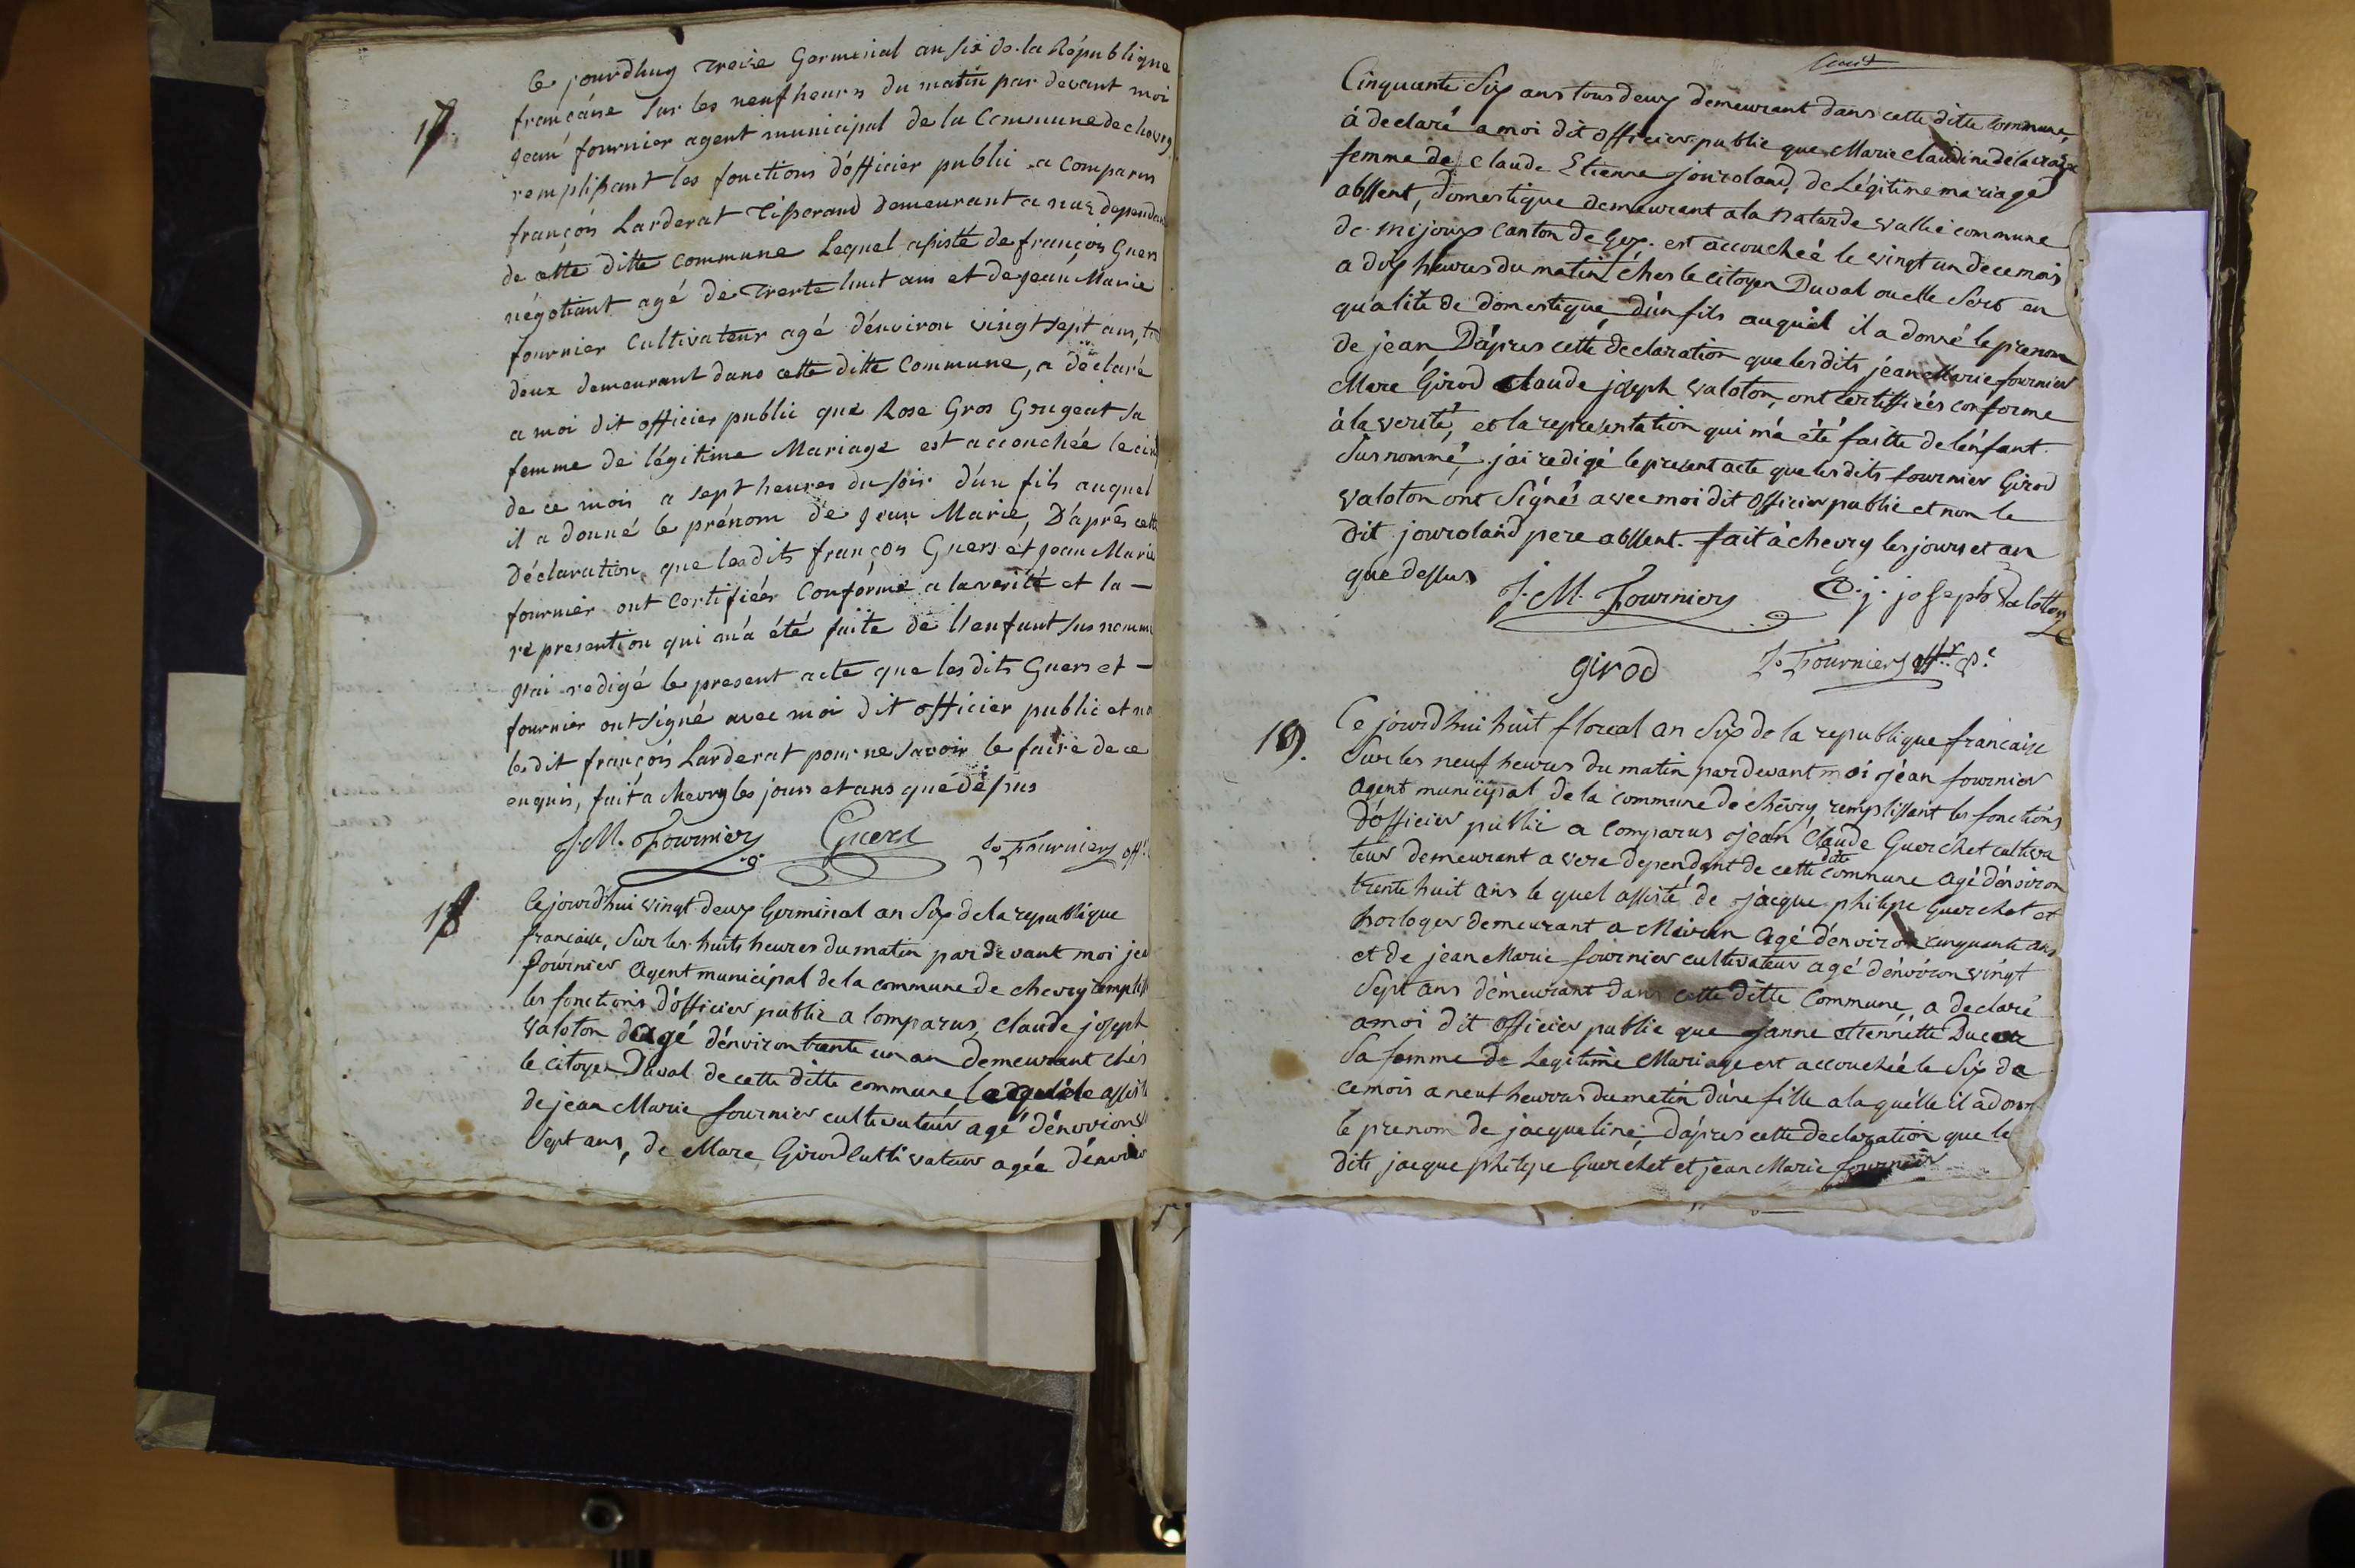 17
Ce jourdhuy treize Germinal an six de la République
françaïse sur les neuf heurs du matin par devant moi
jean fournier agent municipal de la Commune de chevry
remplissant les fonctions d'officier public a Comparus
françois Larderat Tisserand demeurant a naz dependant
de cette ditte commune Lequel assisté de françois Guers
négotiant agé de trente huit ans et de jean Marie
fournier Cultivateur agé d'environ vingt sept ans, tous
deux demeurant dans cette ditte Commune, a déclaré
a moi dit officier public que Rose Gros Gurgeat sa
femme de légitime Mariage est accouchée le cinq
de ce mois a sept heures du soir d'un fils auquel
il a donné le prénom de jean Marie, D'aprés cette
Déclaration que lesdits françois Guers et jean Marie
fournier ont Certifiéés Conforme a la verité et la —
represention qui m'a été faite de l'enfant sus nommé
j'ai redigé le present acte que lesdits Guers et —
fournier ont signé avec moi dit officier public et non
ledit françois Larderat pour ne savoir le faire de ce
enquis, fait a chevry les jours et ans que dessus
J. M. Fournier Guers Jn Fournier off.
18
Ce jourd'hui vingt deux Germinal an Six de la republique
francaise, Sur les huits heures du matin par devant moi jean
fournier Agent municipal de la commune de chevry
les fonctions d'officier public a Comparus, Claude joseph
valoton agé d'environ trente un an Demeurant chés
le Citoyen Duval de cette ditte commune lequel assisté
de jean Marie fournier cultivateur agé d'environ
Sept ans, de Marc Girod Cultivateur agée d'environ
Cinquante Six ans tous deux demeurant dans cette ditte Commune,
à declaré a moi dit officier public que Marie Claudine
femme de Claude Etienne jouroland, de Légitime mariage
abssent, domestique demeurant a la vallie commune
de mijoux Canton de Gex. est accouchéé le vingt un de ce mois
a dix heures du matin chés le citoyen Duval ou elle Sert en
qualité de domestique d'un fils auquél il a donné le prenom
de jean D'áprès cette declaration que lesdits jean Marie fournier
Marc Girod Claude joseph valoton, ont certiffiéés conforme
à la verité, et la representation qui m'à été faitte de l'enfant
Susnommé, j'ai redigé le present acte que lesdits fournier Girod
valoton ont Signés avec moi dit Officier public et non le
dit jouroland pere abssent. fait à chevry les jours et an
que dessus
J. M. Fournier C. j. joseph Valotton
girod Jn Fournier off.r p.c
19.
Ce jourd'hui huit floreal an Six de la republique francaise
Sur les neuf heures du matin pardevant moi jéan fournier
Agent municipal de la commune de chévry remplissant les fonctions
d'officier public a comparus jéan Claude Guerchet cultiva
teur demeurant a vere dependant de cette dite commune agé d'environ
trente huit ans le quel assisté, de jacque philipe Guerchet et
horloger demeurant a Meirin agé d'environ cinquante ans
et de jean Marie fournier cultivateur agé d'environ vingt
Sept ans démeurant dans cette ditte Commune, a declaré
a moi dit officier public que Janne Henriette
Sa femme de Legitime Mariage est accouchéé le Six de
ce mois a neuf heures du matin d'une fille a laquélle il a donné
le prenom de jacqueline, D'áprès cette declaration que les
dits jacque philipe Guerchet et jean Marie fournier